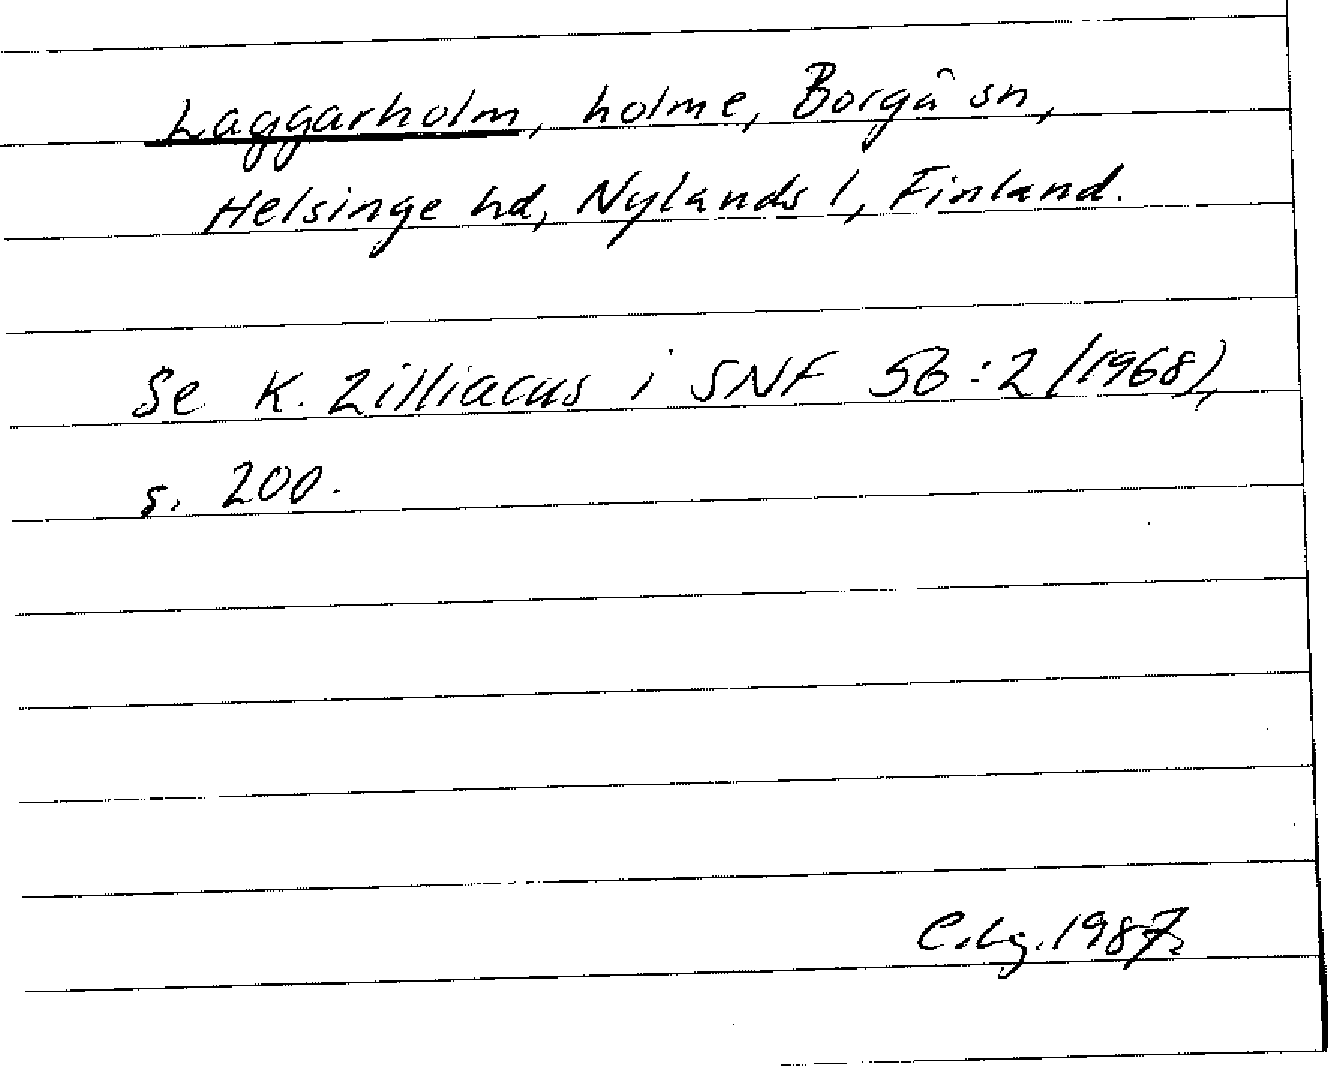 Laggarholm, holme, Borgå sn,
Helsinge hd, Nylands l, Finland.
Se K. Zilliacus i SNF 56:2 (1968),
s. 200.
C.Lg. 1987.